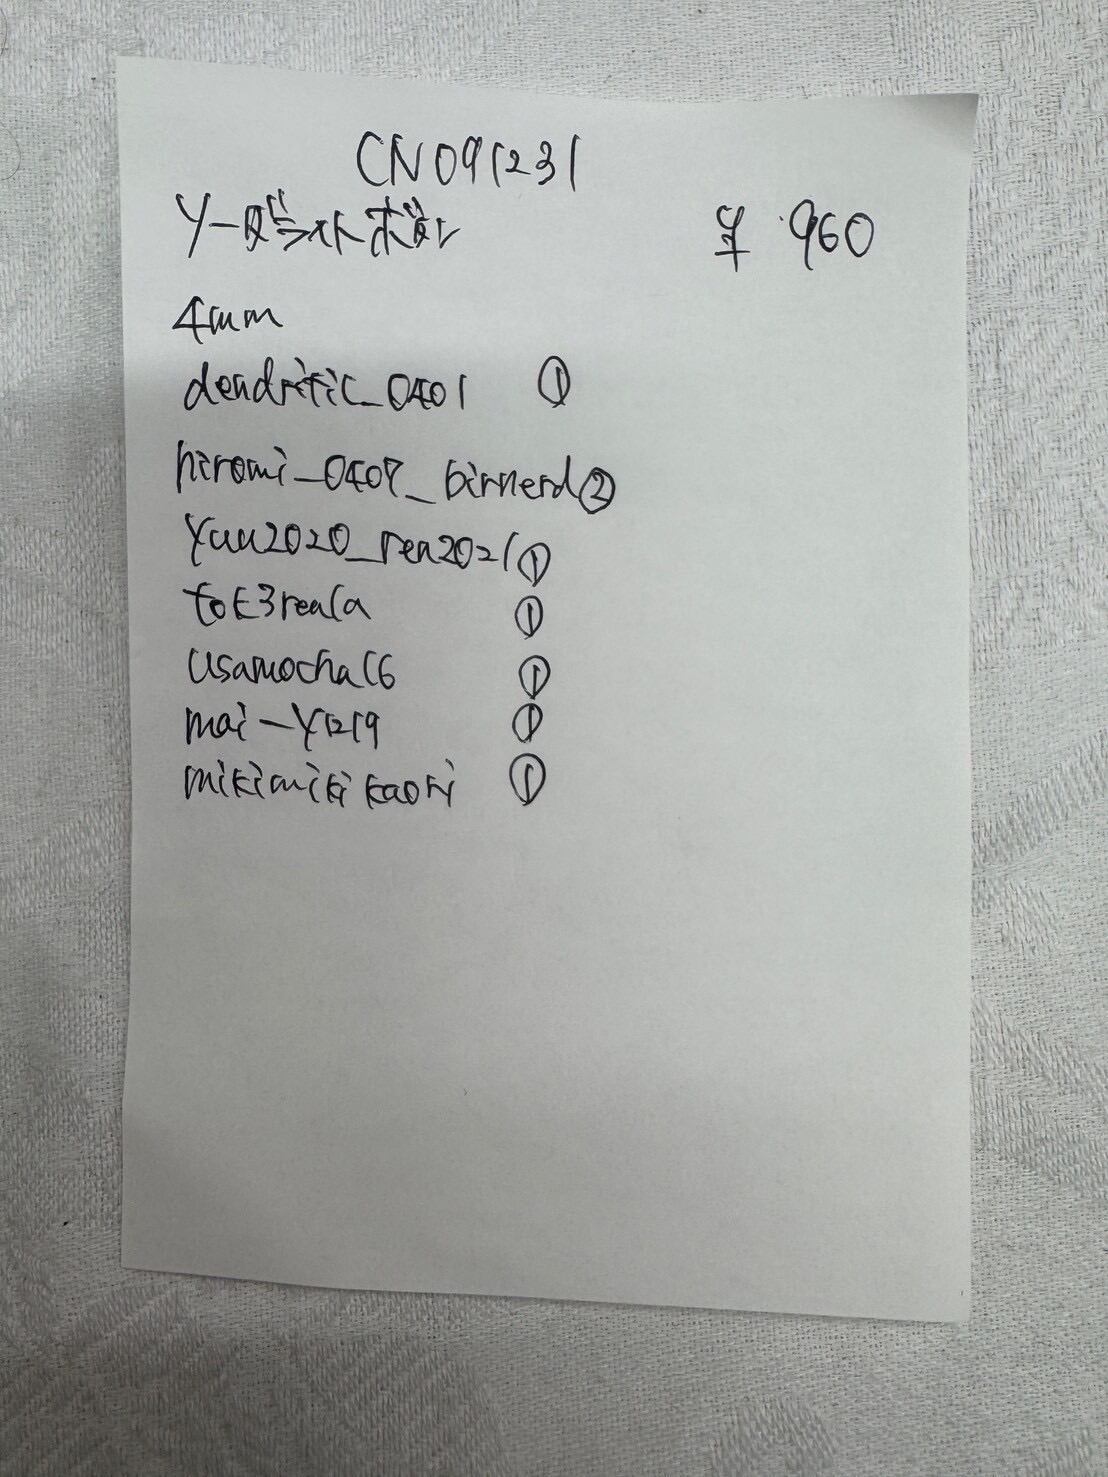 CN091231
¥ 960
4mm
dendritic_0401 ①
hiromi_0407_birnerd②
yuu2020_ren2021①
tok3reala ①
usamocha16 ①
mai-y1219 ①
mikimikikaori ①